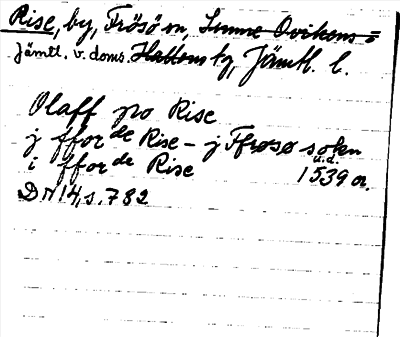 Rise, by, Frösö sn, Sunne Ovikens =
Jämtl. v. doms. Hallens tg, Jämtl. l.
Olaff po Rise
j fforde Rise – j Ffrøsø sokn
i fforde Rise u.d. 1539 or.
DN 14, s. 782